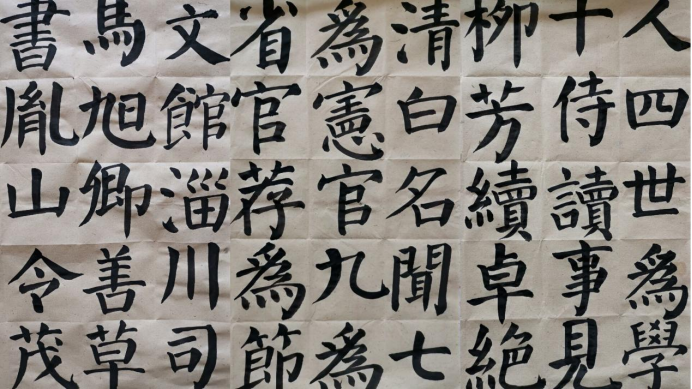 人四世爲學
十侍讀事見
柳芳續卓絕
清白名聞七
爲憲官九爲
省官荐爲節
文館淄川司
馬旭卿善草
書胤山令茂